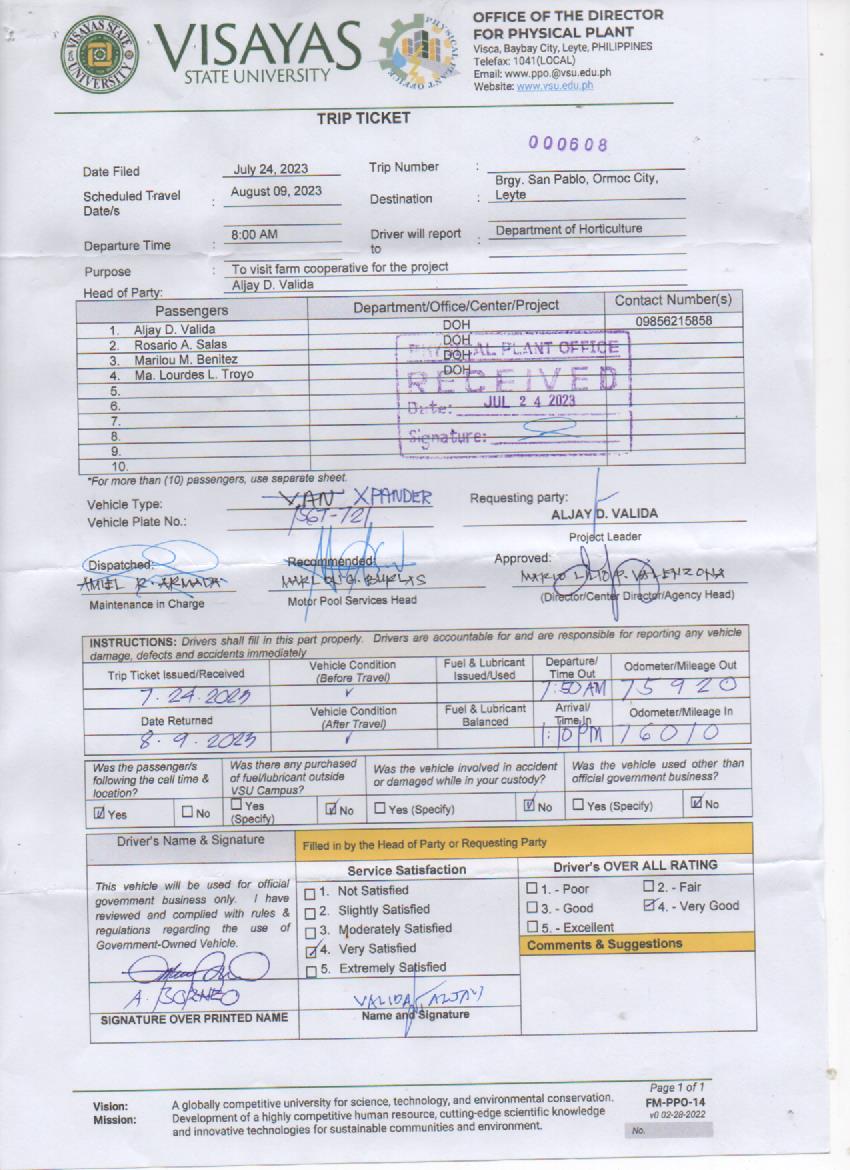 VISAYAS
STATE UNIVERSITY
OFFICE OF THE DIRECTOR
FOR PHYSICAL PLANT
Visca, Baybay City, Leyte, PHILIPPINES
Telefax: 1041(LOCAL)
Email: www.ppo.@vsu.edu.ph
Website: www.vsu.edu.ph
TRIP TICKET
000608
Date Filed July 24, 2023 Trip Number :
Scheduled Travel Date/s : August 09, 2023 Destination : Brgy. San Pablo, Ormoc City, Leyte
Departure Time : 8:00 AM Driver will report to : Department of Horticulture
Purpose : To visit farm cooperative for the project
Head of Party: Aljay D. Valida
Passengers Department/Office/Center/Project Contact Number(s)
1. Aljay D. Valida DOH 09856215858
2. Rosario A. Salas DOH
3. Marilou M. Benitez DOH
4. Ma. Lourdes L. Troyo DOH
5.
6.
7.
8.
9.
10.
PHYSICAL PLANT OFFICE
RECEIVED
Date: JUL 24 2023
Signature:
*For more than (10) passengers, use separate sheet.
Vehicle Type: VAN XPANDER Requesting party:
Vehicle Plate No.: ALJAY D. VALIDA
Project Leader
Dispatched: Recommended: Approved:
AMIEL R. ARMADA MARLON G. BURLAS
Maintenance in Charge Motor Pool Services Head (Director/Center Director/Agency Head)
INSTRUCTIONS: Drivers shall fill in this part properly. Drivers are accountable for and are responsible for reporting any vehicle
damage, defects and accidents immediately
Trip Ticket Issued/Received Vehicle Condition (Before Travel) Fuel & Lubricant Issued/Used Departure/ Time Out Odometer/Mileage Out
7.24.2023 ✓ 7:50 AM 75920
Date Returned Vehicle Condition (After Travel) Fuel & Lubricant Balanced Arrival/ Time In Odometer/Mileage In
8.9.2023 ✓ 1:10 PM 76010
Was the passenger/s following the call time & location? Was there any purchased of fuel/lubricant outside VSU Campus? Was the vehicle involved in accident or damaged while in your custody? Was the vehicle used other than official government business?
☑ Yes ☐ No ☐ Yes (Specify) ☑ No ☐ Yes (Specify) ☑ No ☐ Yes (Specify) ☑ No
Driver's Name & Signature Filled in by the Head of Party or Requesting Party
This vehicle will be used for official
government business only. I have
reviewed and complied with rules &
regulations regarding the use of
Government-Owned Vehicle.
A. BORNEO
SIGNATURE OVER PRINTED NAME
Service Satisfaction
☐ 1. Not Satisfied
☐ 2. Slightly Satisfied
☐ 3. Moderately Satisfied
☑ 4. Very Satisfied
☐ 5. Extremely Satisfied
VALIDA, ALJAY
Name and Signature
Driver's OVER ALL RATING
☐ 1. - Poor ☐ 2. - Fair
☐ 3. - Good ☑ 4. - Very Good
☐ 5. - Excellent
Comments & Suggestions
Vision: A globally competitive university for science, technology, and environmental conservation.
Mission: Development of a highly competitive human resource, cutting-edge scientific knowledge
and innovative technologies for sustainable communities and environment.
Page 1 of 1
FM-PPO-14
v0 02-28-2022
No.